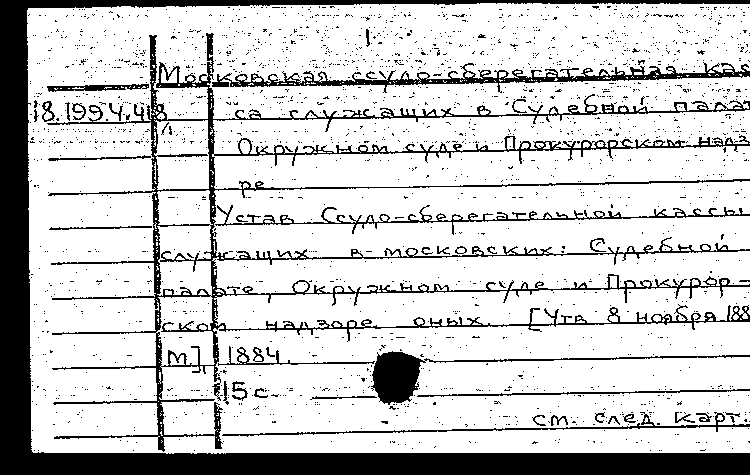 1
Московская ссудо-сберегательная кас
18.199.4.418 са служащих в Судебной палат
Окружном суде и Прокурорском надз
ре.
Устав Ссудо-сберегательной кассы
служащих в московских: Судебной
палате, Окружном суде и Прокурор-
ском надзоре оных. [Утв. 8 ноября 188
М], 1884.
15 с
см. след. карт.